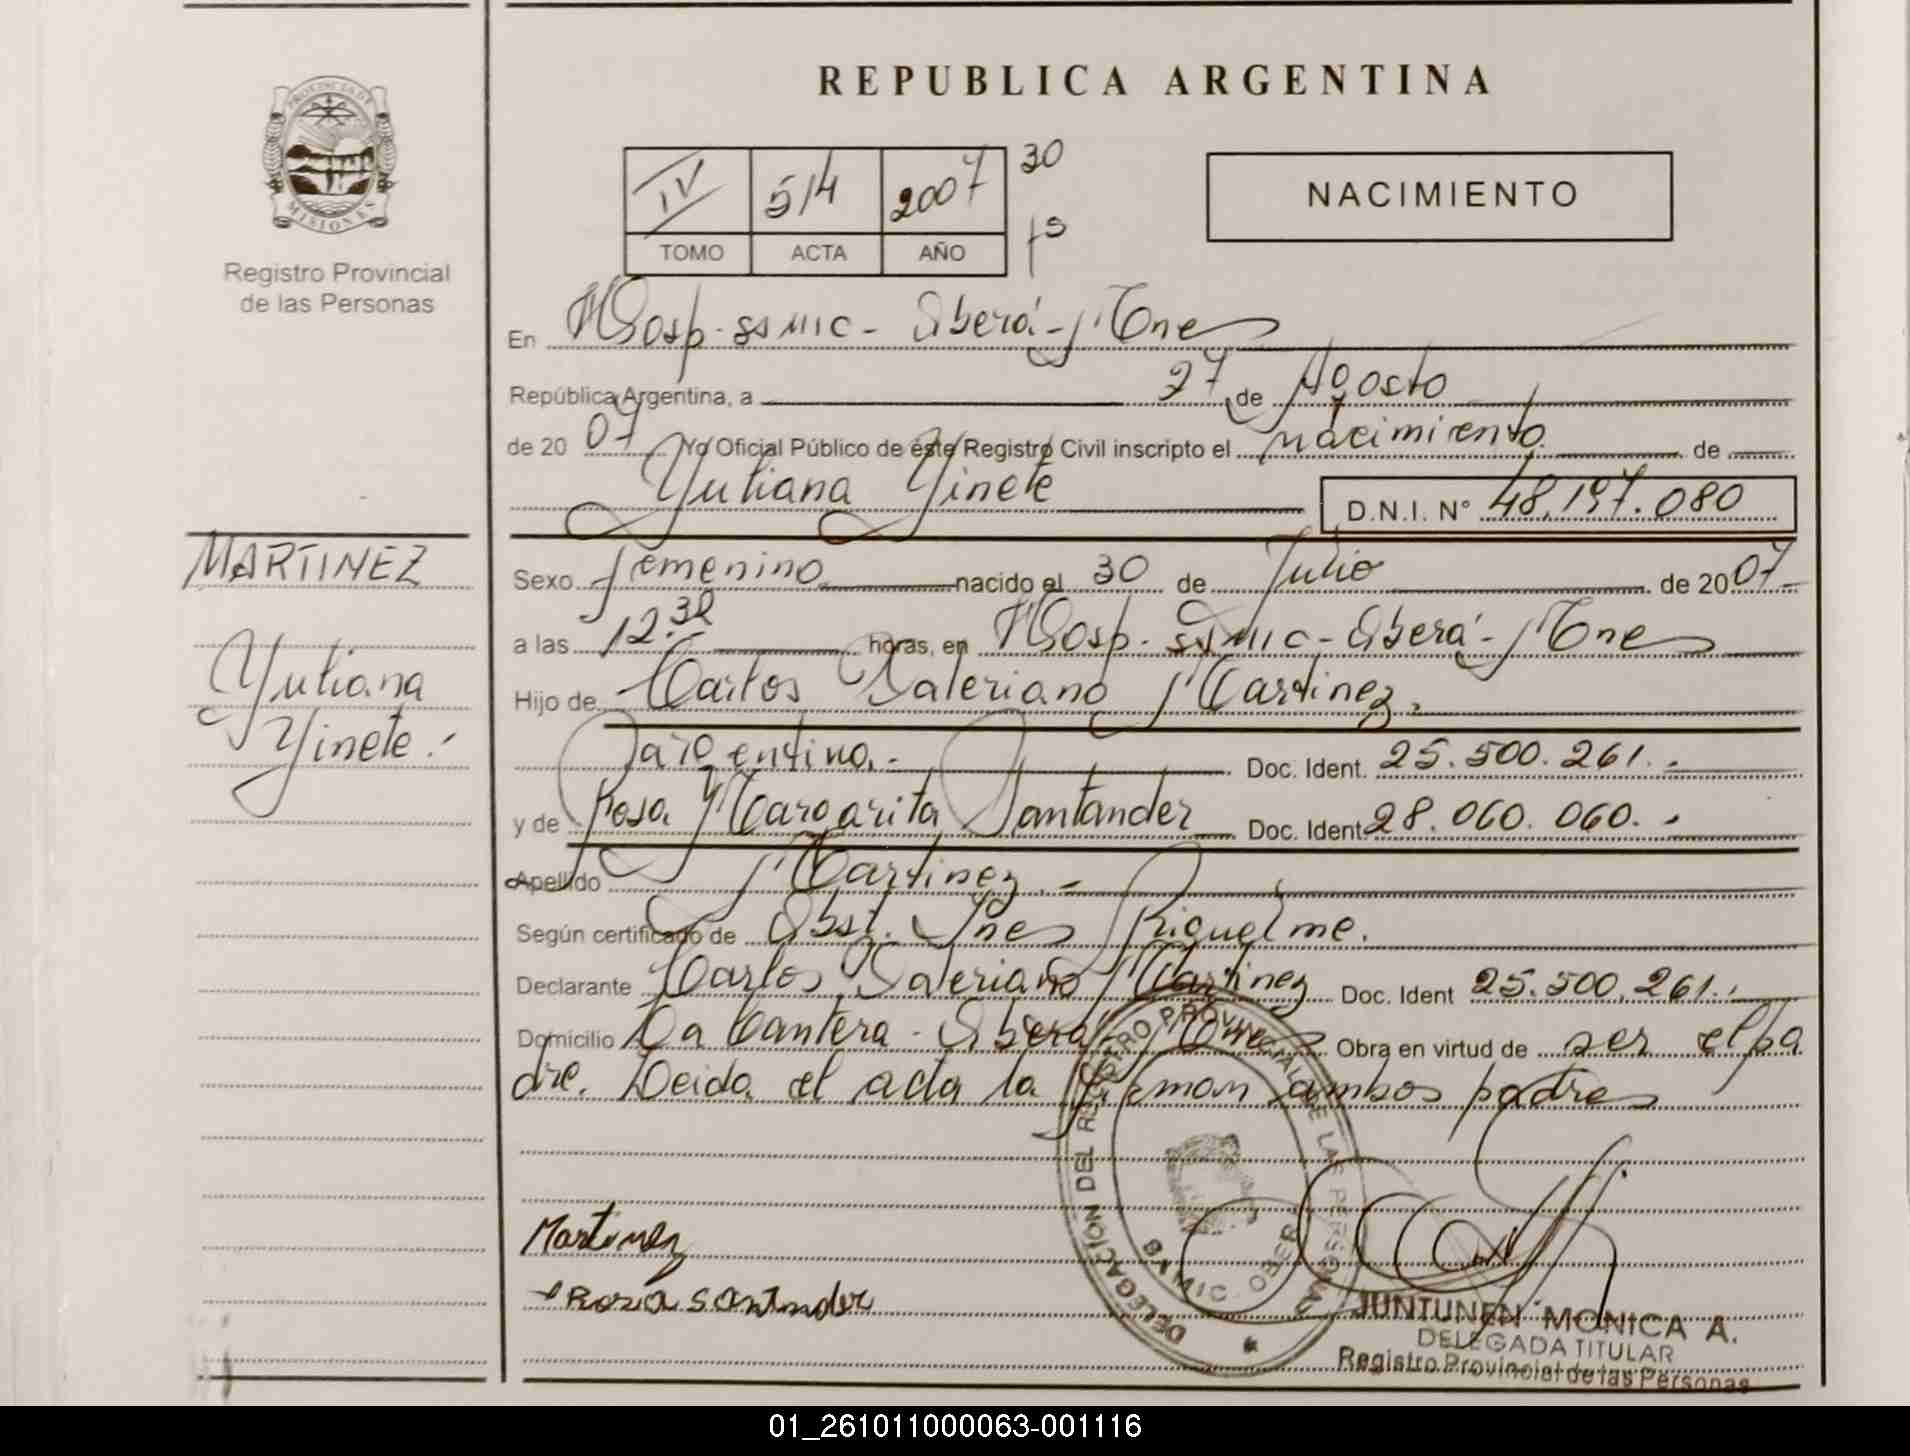 REPUBLICA ARGENTINA
PROVINCIA DE MISIONES
Registro Provincial
de las Personas
IV 514 2007 30
TOMO ACTA AÑO
NACIMIENTO
En Hosp. SSMIC - Oberá - Mnes
República Argentina, a 27 de Agosto
de 2007 Yo Oficial Público de éste Registro Civil inscripto el nacimiento de
Yuliana Yinete D.N.I. N° 48.197.080
MARTINEZ
Yuliana
Yinete.-
Sexo femenino nacido el 30 de Julio de 2007.-
a las 12.32 horas, en Hosp. SSMIC - Oberá - Mnes
Hijo de Carlos Valeriano Martinez,
argentino.- Doc. Ident. 25.500.261.-
y de Rosa Margarita Santander Doc. Ident. 28.060.060.-
Apellido Martinez.-
Según certificado de Obst. Ines Riquelme.
Declarante Carlos Valeriano Martinez Doc. Ident 25.500.261.-
Domicilio La Cantera - Oberá - Mnes Obra en virtud de ser el pa
dre. Leida el acta la firman ambos padres
Martinez
Rosa Santander
DELEGACION DEL REGISTRO PROVINCIAL DE LAS PERSONAS
OBERA
JUNTUNEN MONICA A.
DELEGADA TITULAR
Registro Provincial de las Personas
01_261011000063-001116